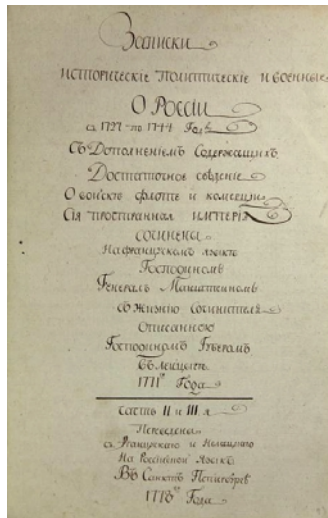 Записки
историческіе политическіе и военные
О Россіи
съ 1727 по 1744 Годъ
Съ Дополненіемъ Содержащихъ
Достаточное сведеніе
О войскѣ флотѣ и комерціи
Сія пространная имперія
сочинены
На французскомъ языкѣ
Господиномъ
Генералъ Манштеиномъ
съ Жизнію Сочинителя
Описанною
Господиномъ Губеромъ
въ Леипцигѣ
1771 Года
часть II и III я
Переведены
съ Французскаго и Немецкаго
На Россійской языкъ
Въ Санктъ Петербургѣ
Года